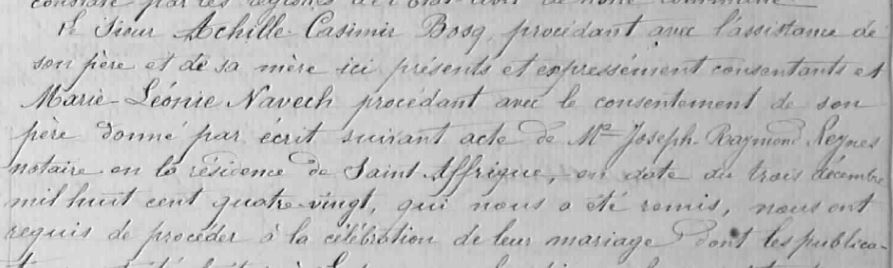 constaté par les régistres de l'état-civil de notre commune
Le Sieur Achille-Casimir Bosq, procédant avec l'assistance de
son père et de sa mère ici présents et expressément consentants et
Marie-Léonie Navech procédant avec le consentement de son
père donné par écrit suivant acte de Me Joseph-Raymond Reynes
notaire en la résidence de Saint-Affrique, en date du trois décembre
mil huit cent quatre-vingt, qui nous a été remis, nous ont
requis de procéder à la célébration de leur mariage dont les publica-